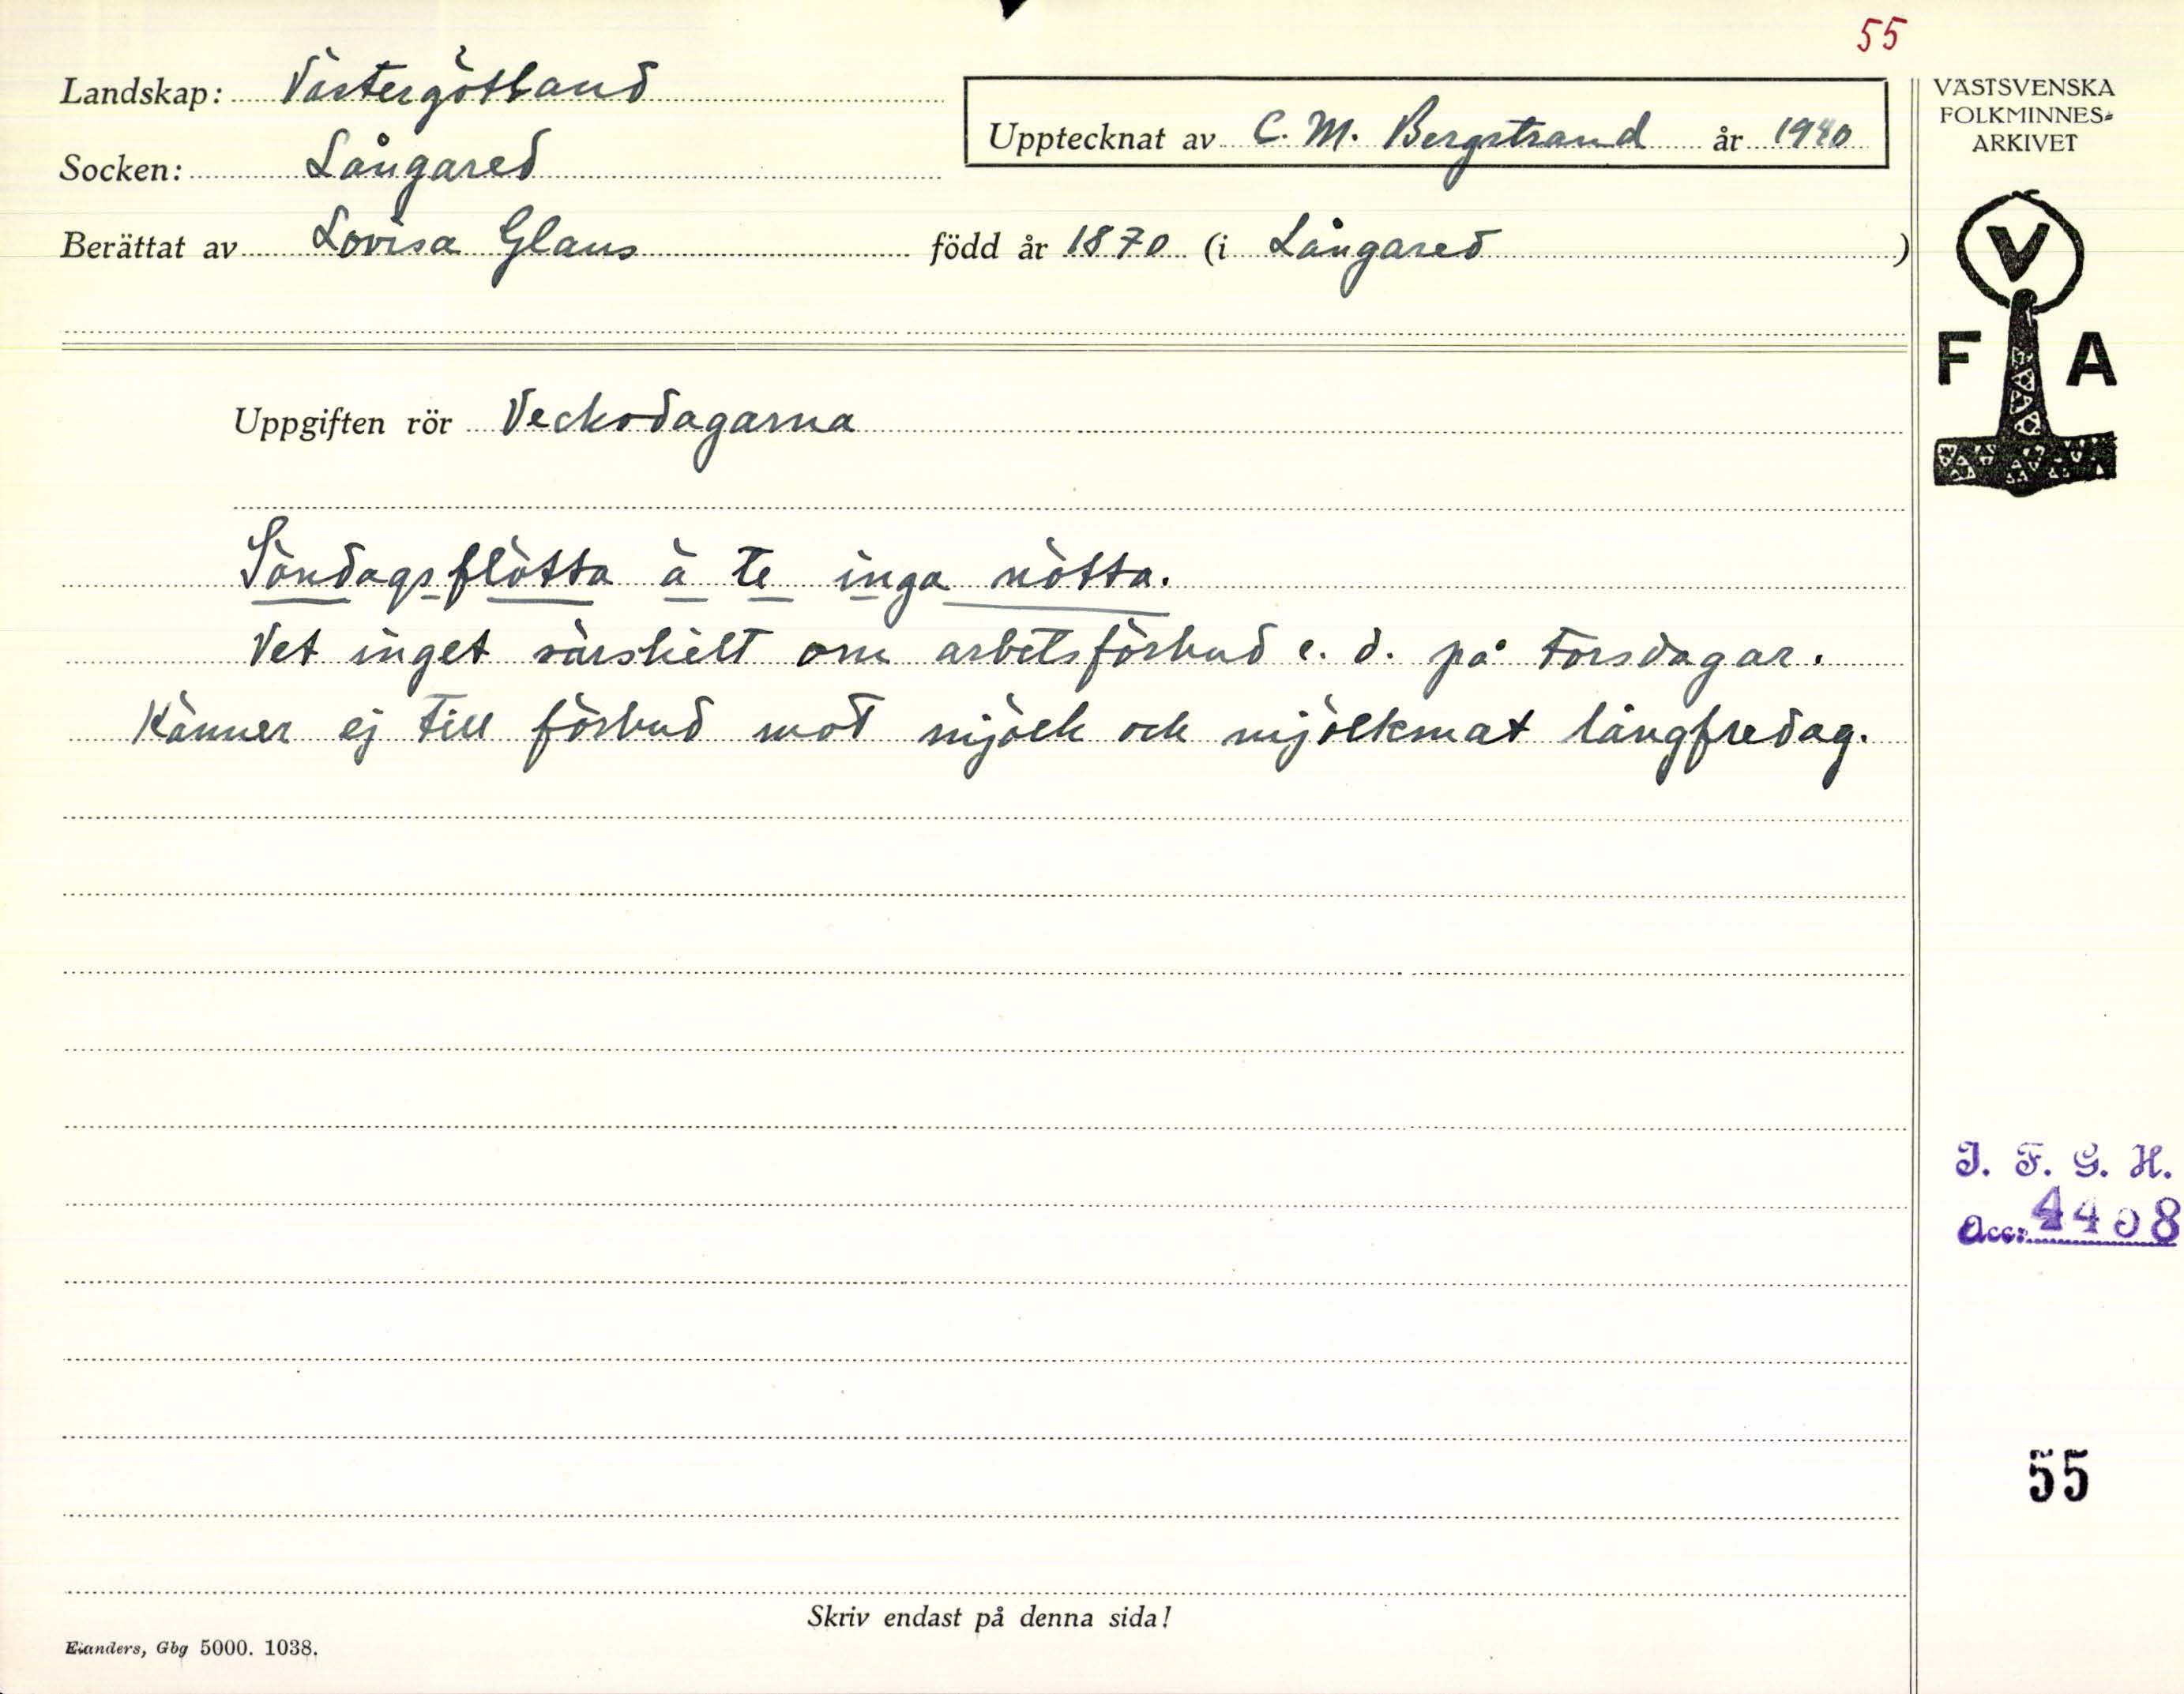 55
Landskap: Västergötland
Upptecknat av C. M. Bergstrand år 1940
Socken: Långared
Berättat av Lovisa Glans född år 1870 (i Långared )
VÄSTSVENSKA
FOLKMINNES-
ARKIVET
V
F A
Uppgiften rör Veckodagarna
Söndagsflötta ä te inga nötta.
Vet inget särskielt om arbetsförbud e. d. på torsdagar.
Känner ej till förbud mot mjölk och mjölkmat långfredag.
I. F. G. H.
Acc: 4408
55
Skriv endast på denna sida!
Elanders, Gbg 5000. 1038.